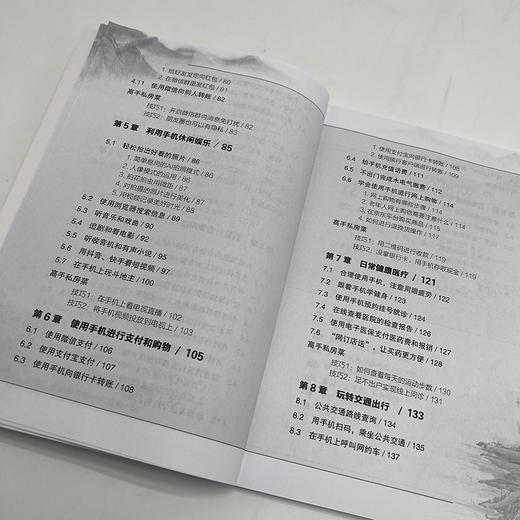 1. 给好友发定向红包 / 80
2. 在微信群里发红包 / 81
4.11 使用微信向别人转账 / 82
高手私房菜
技巧1：开启微信群内消息免打扰 / 82
技巧2：朋友圈也可以有隐私 / 83
第5章 利用手机休闲娱乐 / 85
5.1 轻松拍出好看的照片 / 86
1. 简单易用的AI拍照模式 / 86
2. 人像模式的运用 / 86
3. 拍花拍虫用微距 / 87
4. 对拍摄的照片进行美化 / 87
5. 用视频记录美好时光 / 88
5.2 使用浏览器搜索信息 / 89
5.3 听音乐和戏曲 / 90
5.4 追剧和看电影 / 92
5.5 听收音机和有声小说 / 95
5.6 用抖音、快手看短视频 / 97
5.7 在手机上玩斗地主 / 100
高手私房菜
技巧1：在手机上看电视直播 / 102
技巧2：将手机视频投放到电视上 / 103
第6章 使用手机进行支付和购物 / 105
6.1 使用微信支付 / 106
6.2 使用支付宝支付 / 107
6.3 使用手机向银行卡转账 / 108
1. 使用支付宝向银行卡转账 / 108
2. 使用银行客户端进行转账 / 109
6.4 给手机充值话费 / 111
6.5 不出门完成水电气缴费 / 112
6.6 学会使用手机进行网上购物 / 114
1. 网上购物有哪些步骤 / 114
2. 老年人网上购物需要注意什么 / 114
3. 在京东平台购买商品 / 114
4. 如何进行退换货操作 / 117
高手私房菜
技巧1：用二维码进行收款 / 119
技巧2：没拿银行卡，用手机存取现金 / 119
第7章 日常健康医疗 / 121
7.1 合理使用手机，注意用眼疲劳 / 122
7.2 跟着手机学健身 / 123
7.3 使用手机预约挂号就诊 / 124
7.4 在线查看医院的检查报告 / 126
7.5 使用电子医保支付医药费和报销 / 127
7.6 “网订店送”，让买药更方便 / 128
高手私房菜
技巧1：如何查看每天的运动步数 / 130
技巧2：足不出户实现线上问诊 / 131
第8章 玩转交通出行 / 133
8.1 公共交通路线查询 / 134
8.2 用手机扫码，乘坐公共交通 / 135
8.3 在手机上呼叫网约车 / 137